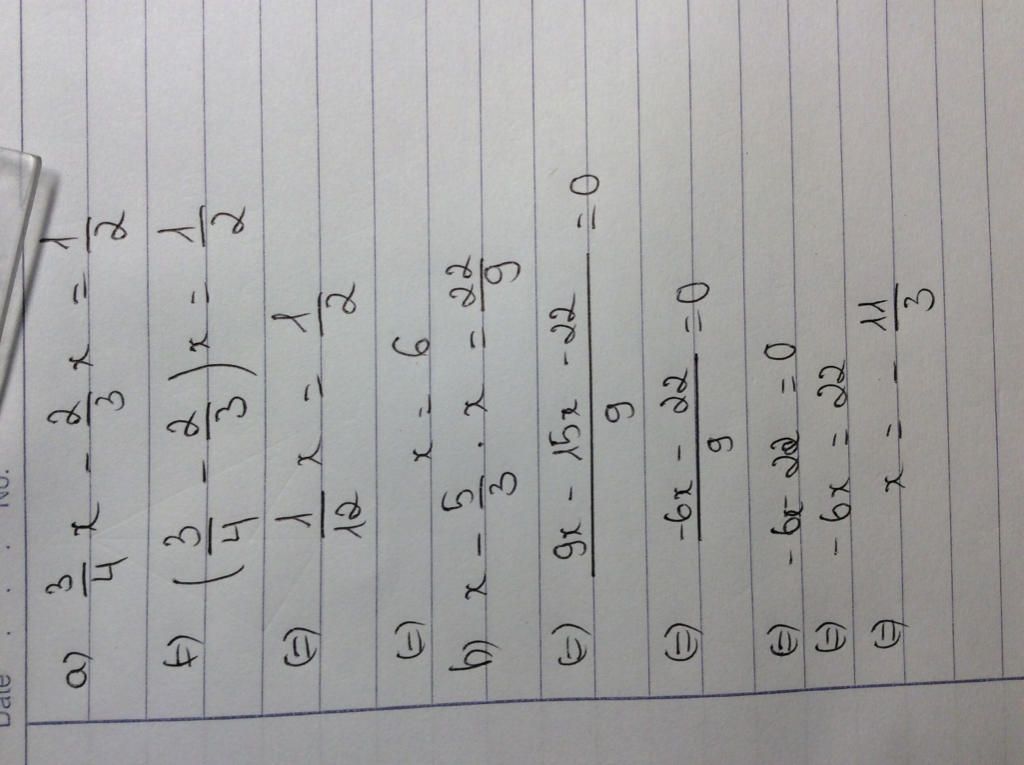 Date . . . No.
a) 3/4 x - 2/3 x = 1/2
(=) (3/4 - 2/3) x = 1/2
(=) 1/12 x = 1/2
(=) x = 6
b) x - 5/3 . x = 22/9
(=) (9x - 15x - 22)/9 = 0
(=) (-6x - 22)/9 = 0
(=) -6x - 22 = 0
(=) -6x = 22
(=) x = - 11/3